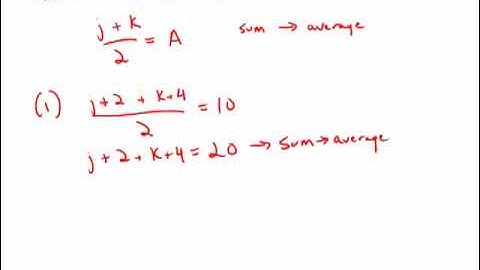 j + k / 2 = A   sum → average
(1) j+2 + k+4 / 2 = 10
j+2+k+4 = 20 → sum → average